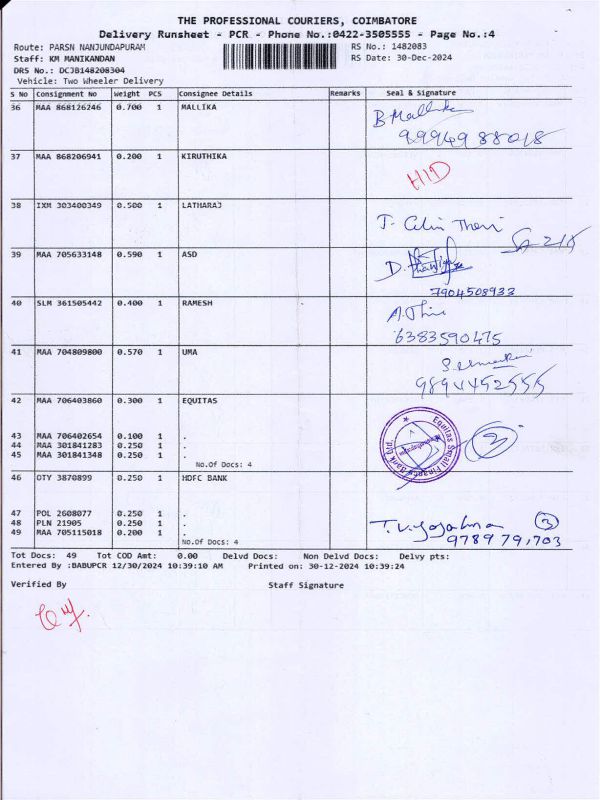 THE PROFESSIONAL COURIERS, COIMBATORE
Delivery Runsheet - PCR - Phone No.:0422-3505555 - Page No.:4
Route: PARSN NANJUNDAPURAM RS No.: 1482083
Staff: KM MANIKANDAN RS Date: 30-Dec-2024
DRS No.: DCJB148208304
Vehicle: Two Wheeler Delivery
S No Consignment No Weight PCS Consignee Details Remarks Seal & Signature
36 MAA 868126246 0.700 1 MALLIKA B Mallika
9994988018
37 MAA 868206941 0.200 1 KIRUTHIKA
H/D
38 IXM 303400349 0.500 1 LATHARAJ
39 MAA 705633148 0.590 1 ASD
7904508933
40 SLM 361505442 0.400 1 RAMESH
6383590475
41 MAA 704809800 0.570 1 UMA
42 MAA 706403860 0.300 1 EQUITAS
Equitas Small Finance Bank Ltd
43 MAA 706402654 0.100 1 .
44 MAA 301841283 0.250 1 .
45 MAA 301841348 0.250 1 .
No.Of Docs: 4
46 OTY 3870899 0.250 1 HDFC BANK
47 POL 2608077 0.250 1 .
48 PLN 21905 0.250 1 .
49 MAA 705115018 0.200 1 . 3
No.Of Docs: 4 9789791703
Tot Docs: 49 Tot COD Amt: 0.00 Delvd Docs: Non Delvd Docs: Delvy pts:
Entered By :BABUPCR 12/30/2024 10:39:10 AM Printed on: 30-12-2024 10:39:24
Verified By Staff Signature